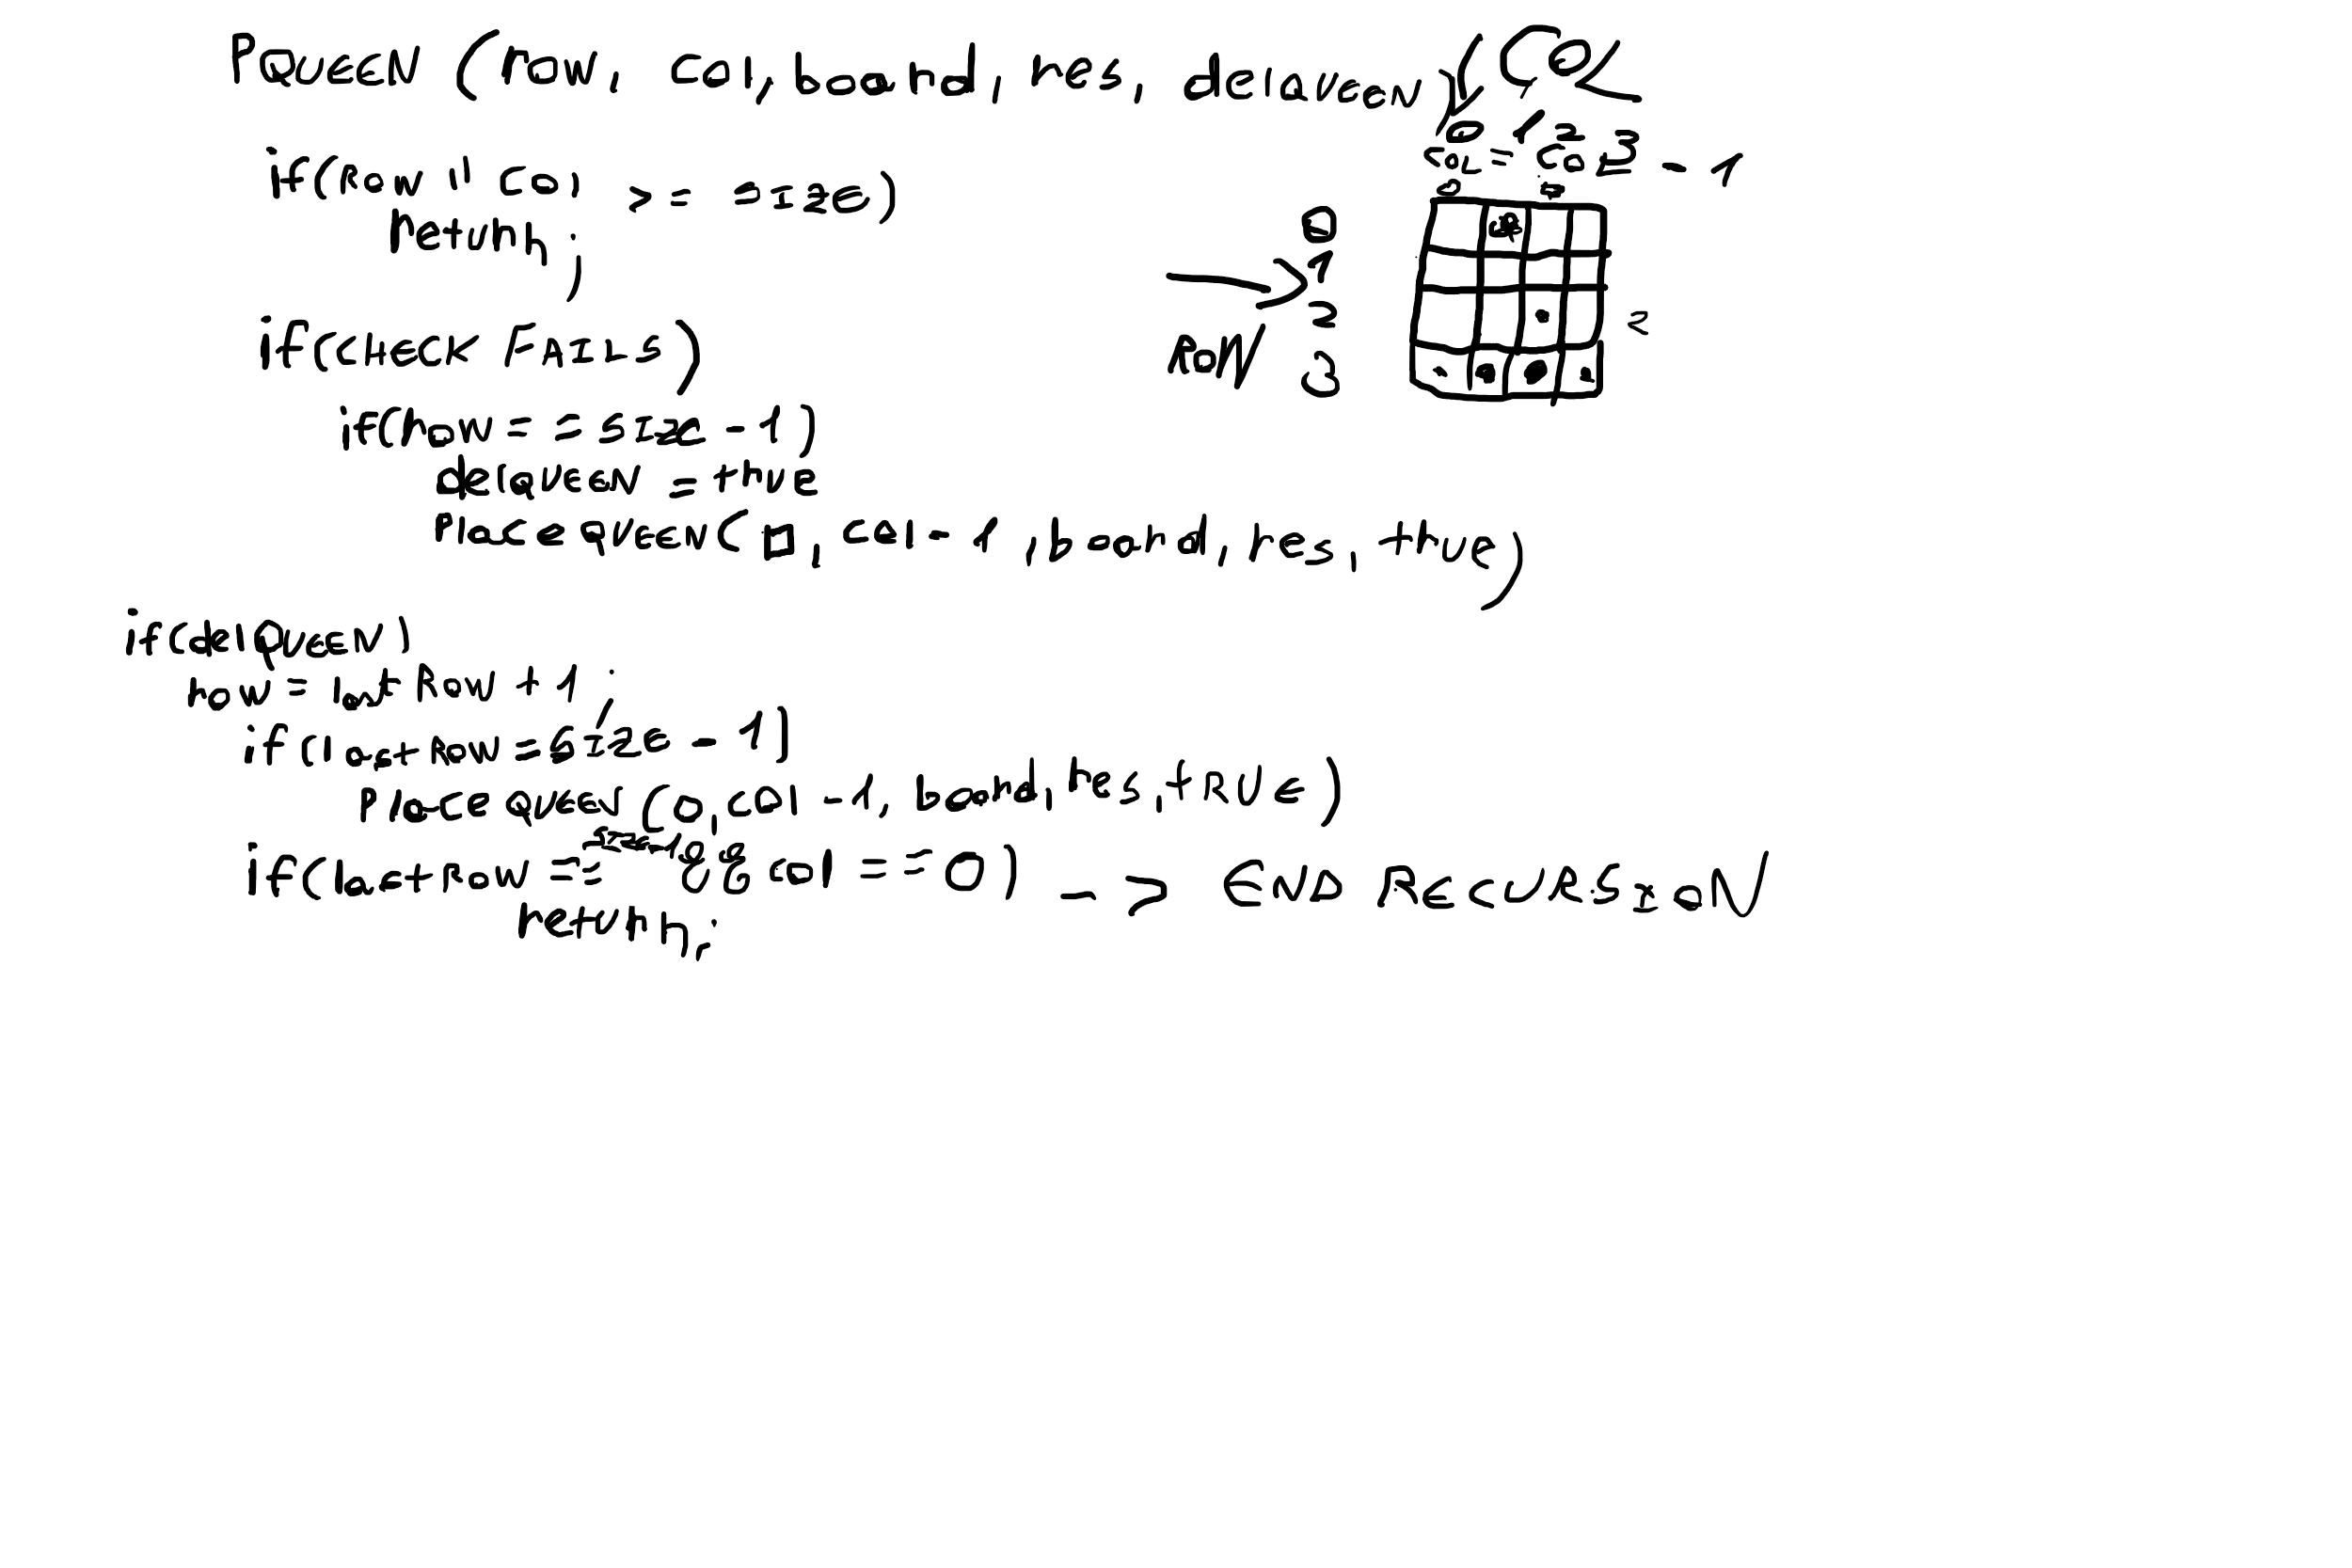 PQUEEN (row, col, board, res, delqueen) COL
0 1 2 3
COL = COL - 1
if(Row || col >= SIZE)
return;
0
1
2
3
ROW
2
if(CHECK FAILS)
if(row == SIZE - 1)
delqueen = true
PlaceQUEEN(0, col - 1, board, res, true)
if(delQUEEN)
row = last Row + 1;
if(last Row = SIZE - 1)
Place QUEEN(0, col - 1, board, res, tRUE)
if(last Row == SIZE-1 && col == 0) -> END RECURSION
return;